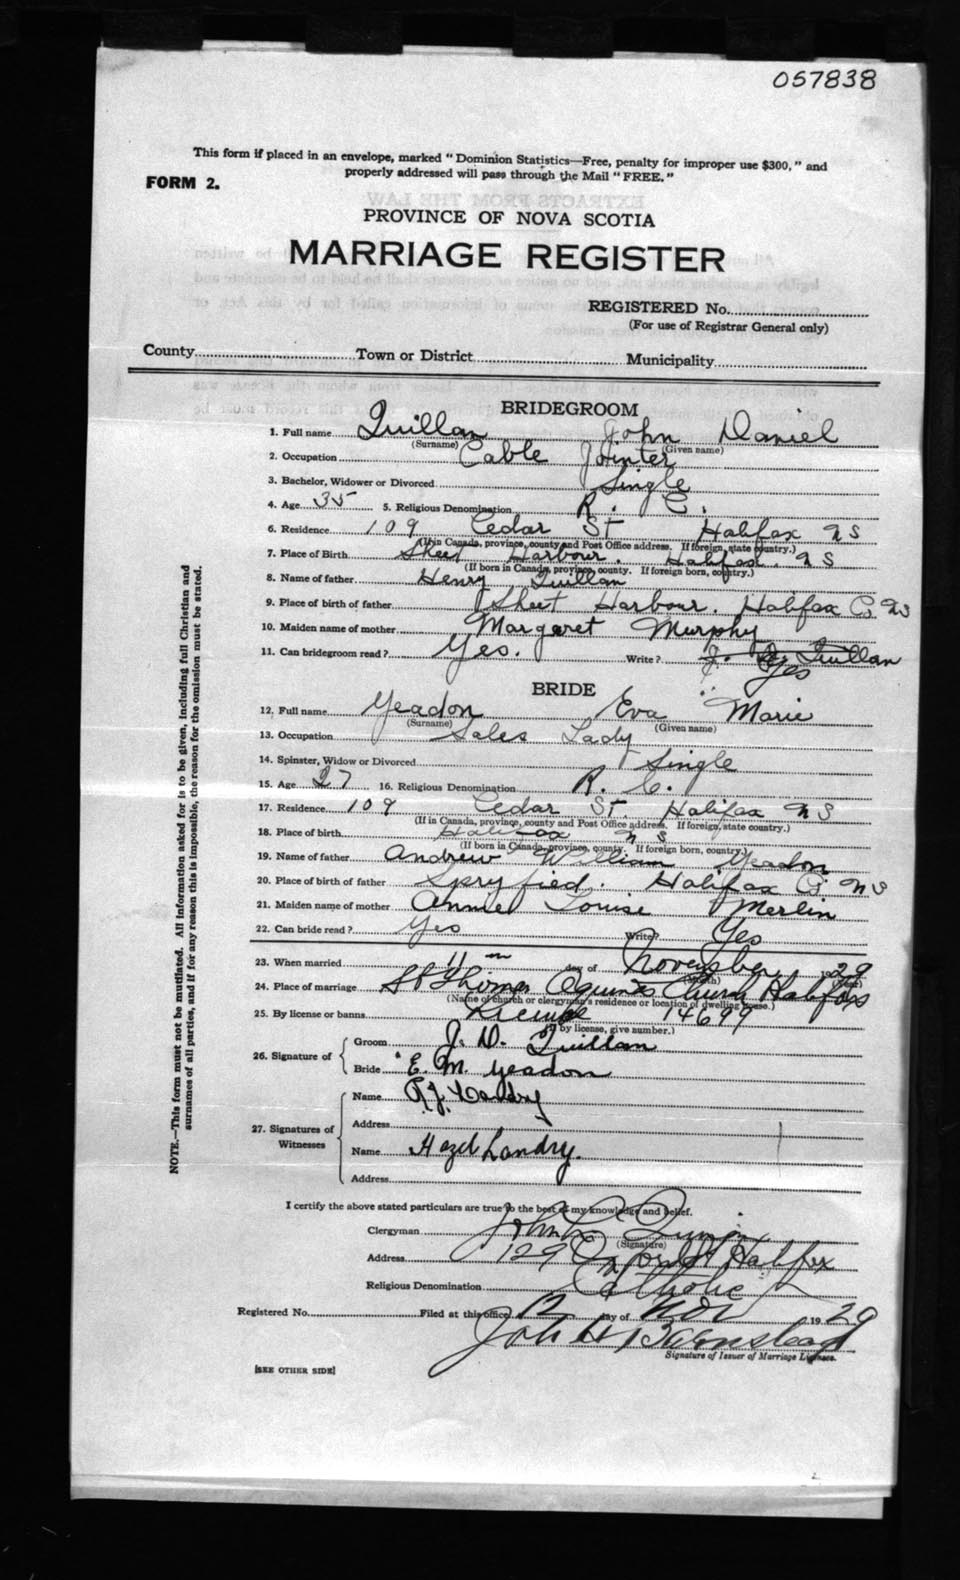 057838
This form if placed in an envelope, marked "Dominion Statistics—Free, penalty for improper use $300," and
properly addressed will pass through the Mail "FREE."
FORM 2.
PROVINCE OF NOVA SCOTIA
MARRIAGE REGISTER
REGISTERED No.
(For use of Registrar General only)
County Town or District Municipality
BRIDEGROOM
1. Full name Quillan John Daniel
(Surname) (Given name)
2. Occupation Cable Jointer
3. Bachelor, Widower or Divorced Single
4. Age 35 5. Religious Denomination R. C.
6. Residence 109 Cedar St Halifax N S
(If in Canada, province, county and Post Office address. If foreign, state country.)
7. Place of Birth Sheet Harbour. Halifax. N S
(If born in Canada, province, county. If foreign born, country.)
8. Name of father Henry Quillan
9. Place of birth of father Sheet Harbour. Halifax Co NS
10. Maiden name of mother Margaret Murphy
11. Can bridegroom read? Yes. Write? J. D. Quillan
Yes
BRIDE
12. Full name Yeadon Eva Marie
(Surname) (Given name)
13. Occupation Sales Lady
14. Spinster, Widow or Divorced Single
15. Age 27 16. Religious Denomination R. C.
17. Residence 109 Cedar St. Halifax N S
(If in Canada, province, county and Post Office address. If foreign, state country.)
18. Place of birth Halifax N S
(If born in Canada, province, county. If foreign born, country.)
19. Name of father Andrew William Yeadon
20. Place of birth of father Spryfied. Halifax Co N S
21. Maiden name of mother Annie Louise Merlin
22. Can bride read? Yes Write? Yes
23. When married 11 day of November 1929
(Month) (Year)
24. Place of marriage St Thomas Aquinas Church Halifax
(Name of church or clergyman's residence or location of dwelling house.)
25. By license or banns License 14699
(If by license, give number.)
26. Signature of Groom J. D. Quillan
Bride E. M. Yeadon
27. Signatures of Witnesses Name R. J. Landry
Address
Name Hazel Landry.
Address
I certify the above stated particulars are true to the best of my knowledge and belief.
Clergyman John
(Signature)
Address 129 Oxford St Halifax
Religious Denomination Catholic
Registered No. Filed at this office 12 day of Nov 1929
John H Barnstead
Signature of Issuer of Marriage Licenses.
[SEE OTHER SIDE]
NOTE.—This form must not be mutilated. All information asked for is to be given, including full Christian and
surnames of all parties, and if for any reason this is impossible, the reason for the omission must be stated.